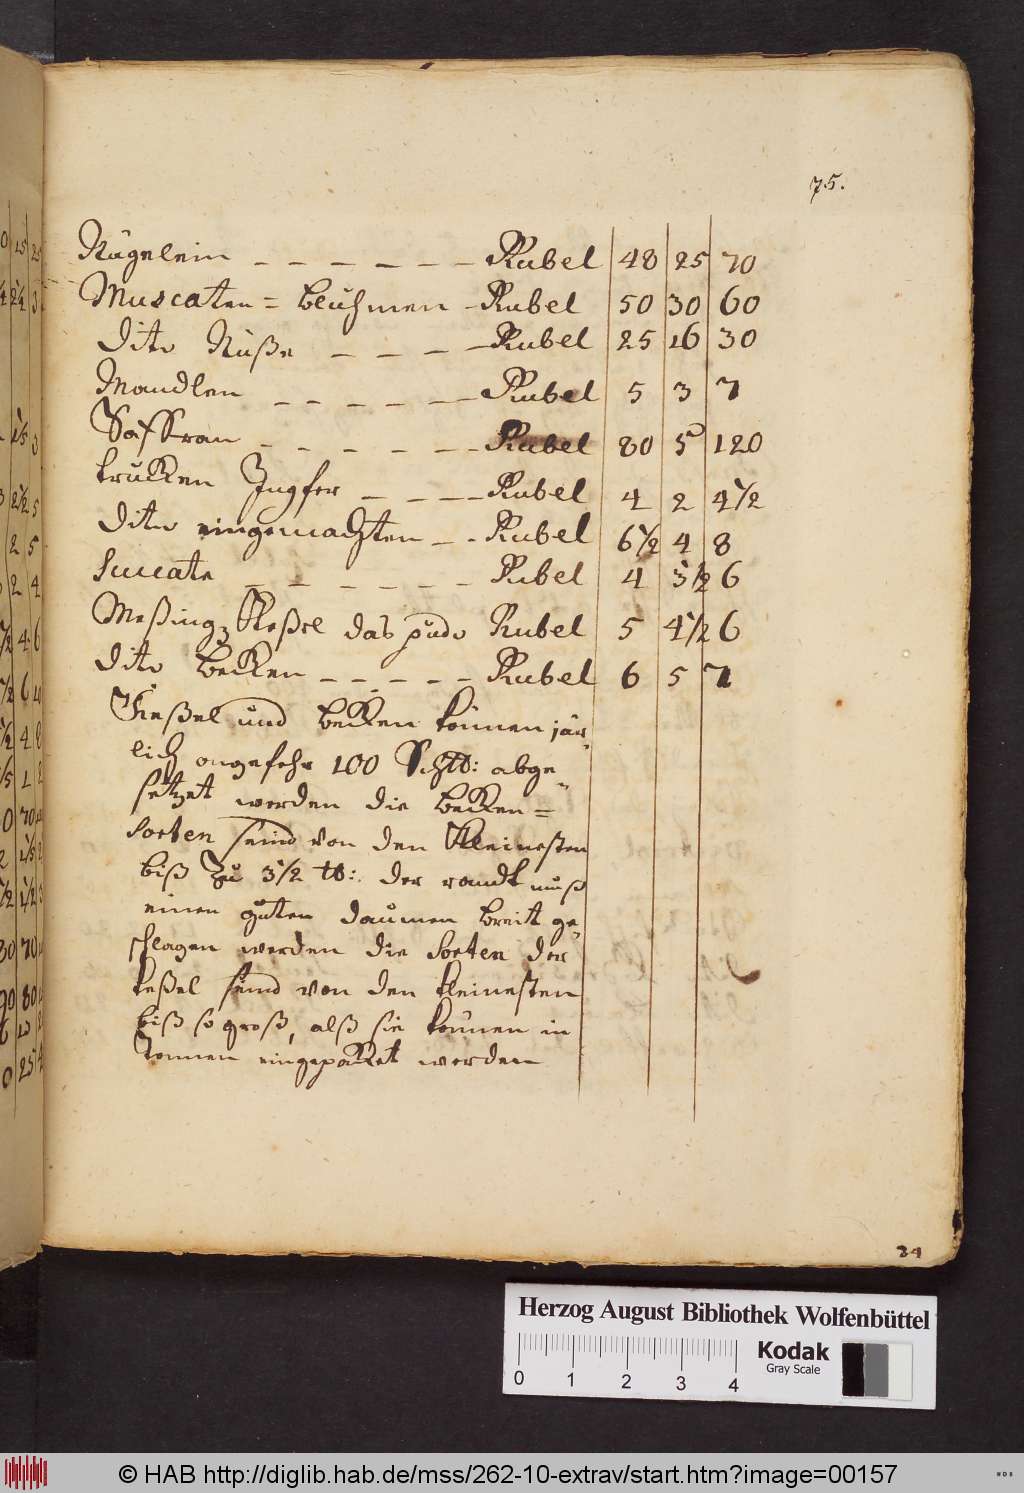 75.
Nägelein - - - - - - Rubel 48 25 70
Muscaten = bluhmen - Rubel 50 30 60
dito Nüße - - - - Rubel 25 16 30
Mandlen - - - - - Rubel 5 3 7
Saffran - - - - - Rubel 80 5 120
trucken Ingfer - - - Rubel 4 2 4 1/2
dito eingemachten - - Rubel 6 1/2 4 8
Succate - - - - - - Rubel 4 3 1/2 6
Meßing Keßel das pudo Rubel 5 4 1/2 6
dito becken - - - - - Rubel 6 5 7
Keßel und becken können jär-
lich ongefehr 100 Schtt: abge-
setzet werden die becken =
Sorten seind von den Kleinesten
biß Zu 3 1/2 tb: der randt muß
einen guten daumen breit ge-
schlagen werden die Sorten der
keßel seind von den kleinesten
biß so groß, alß sie können in
Tonnen eingepacket werden
34
Herzog August Bibliothek Wolfenbüttel
Kodak
Gray Scale
0 1 2 3 4
© HAB http://diglib.hab.de/mss/262-10-extrav/start.htm?image=00157